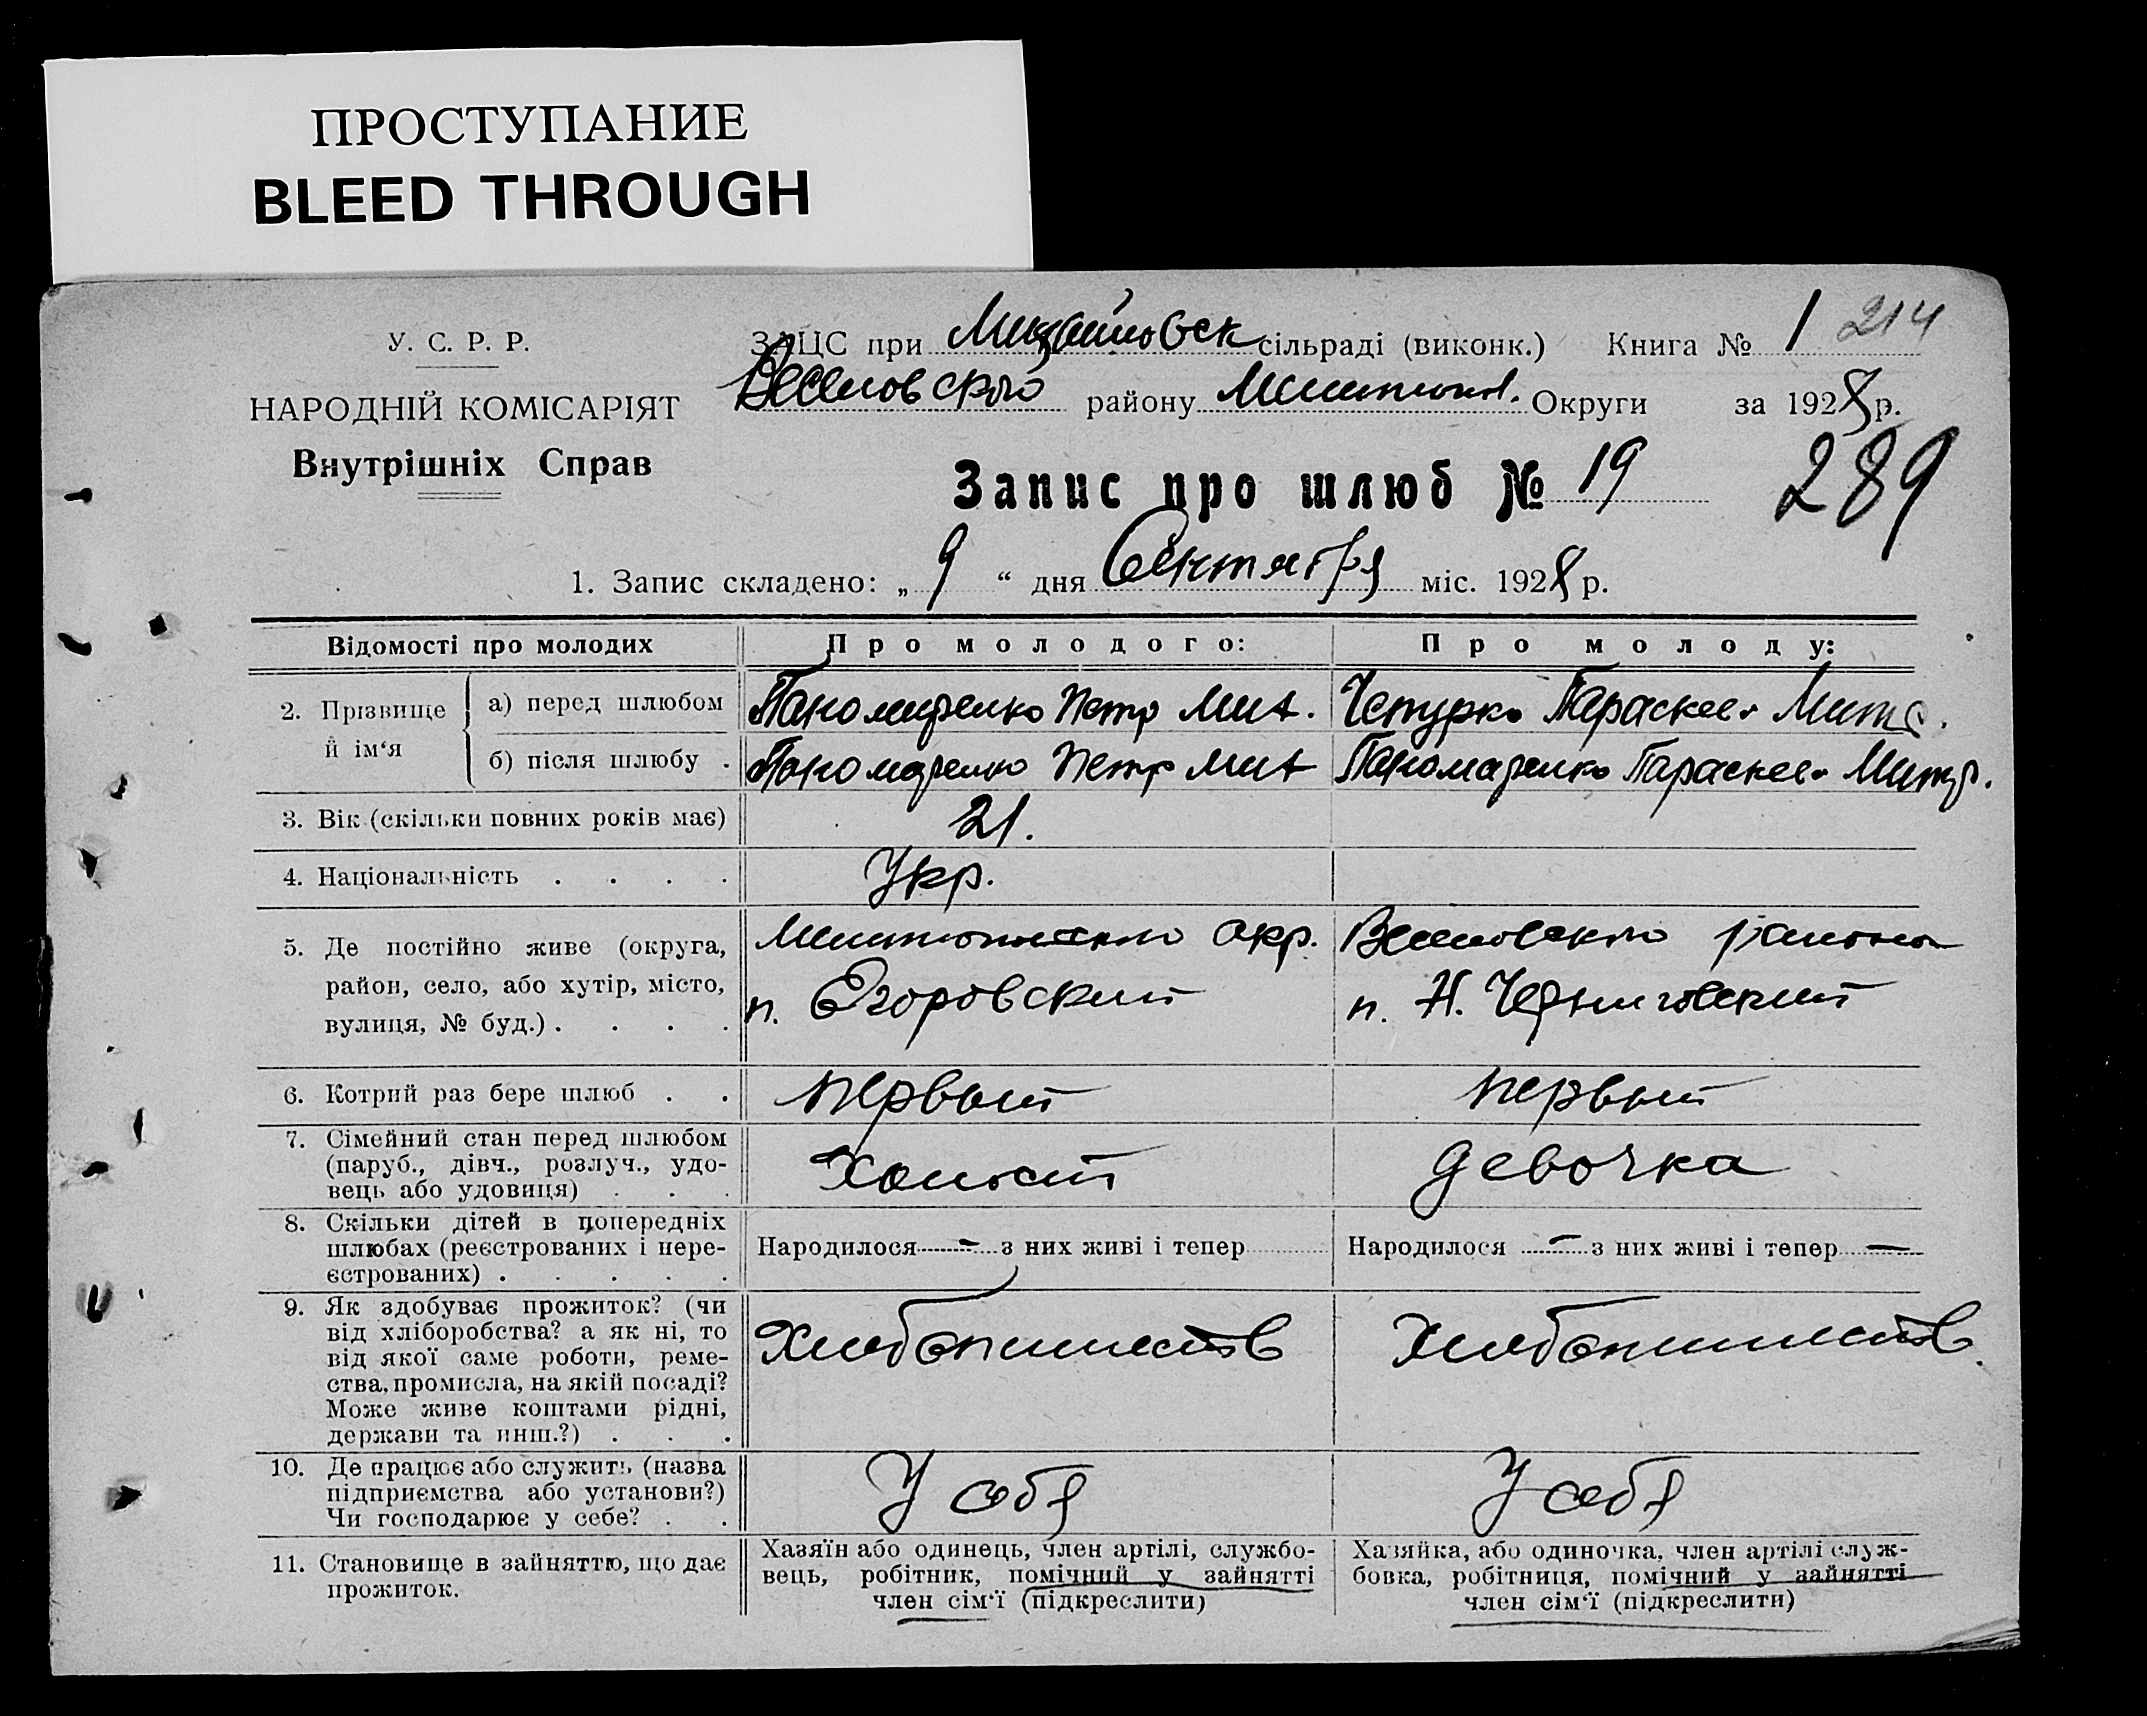 ПРОСТУПАНИЕ
BLEED THROUGH
У. С. Р. Р.
НАРОДНІЙ КОМІСАРІЯТ
Внутрішніх Справ
ЗАЦС при Михайловск сільраді (виконк.) Книга № 1 214
Веселовского району Мелитопол. Округи за 1928 р.
Запис про шлюб № 19 289
1. Запис складено: „ 9 “ дня Сентября міс. 1928 р.
Відомості про молодих Про молодого: Про молоду:
2. Прізвище й ім‘я
а) перед шлюбом Пономаренко Петр Мит. Чепурко Параскев
б) після шлюбу . Пономаренко Петр Мит Пономаренко Параскев Митр.
3. Вік (скільки повних років має) 21.
4. Національність . . . . Укр.
5. Де постійно живе (округа, район, село, або хутір, місто, вулиця, № буд.) . . . .
Мелитопольского окр. Веселовского района
п. Егоровский п. Н. Черниговский
6. Котрий раз бере шлюб . . первый первый
7. Сімейний стан перед шлюбом
(паруб., дівч., розлуч., удо-
вець або удовиця) . . . Холост девочка
8. Скільки дітей в попередніх
шлюбах (реєстрованих і нере-
єстрованих) . . . . .
Народилося - з них живі і тепер Народилося - з них живі і тепер —
9. Як здобуває прожиток? (чи
від хліборобства? а як ні, то
від якої саме роботи, реме-
ства, промисла, на якій посаді?
Може живе коштами рідні,
держави та инш.?) . . .
Хлебопашеств Хлебопашеств.
10. Де працює або служить (назва
підприємства або установи?)
Чи господарює у себе? . .
У себя У себя
11. Становище в зайняттю, що дає
прожиток.
Хазяїн або одинець, член артілі, службо-
вець, робітник, помічний у зайнятті
член сім‘ї (підкреслити)
Хазяйка, або одиночка, член артілі служ-
бовка, робітниця, помічний у зайнятті
член сім‘ї (підкреслити)